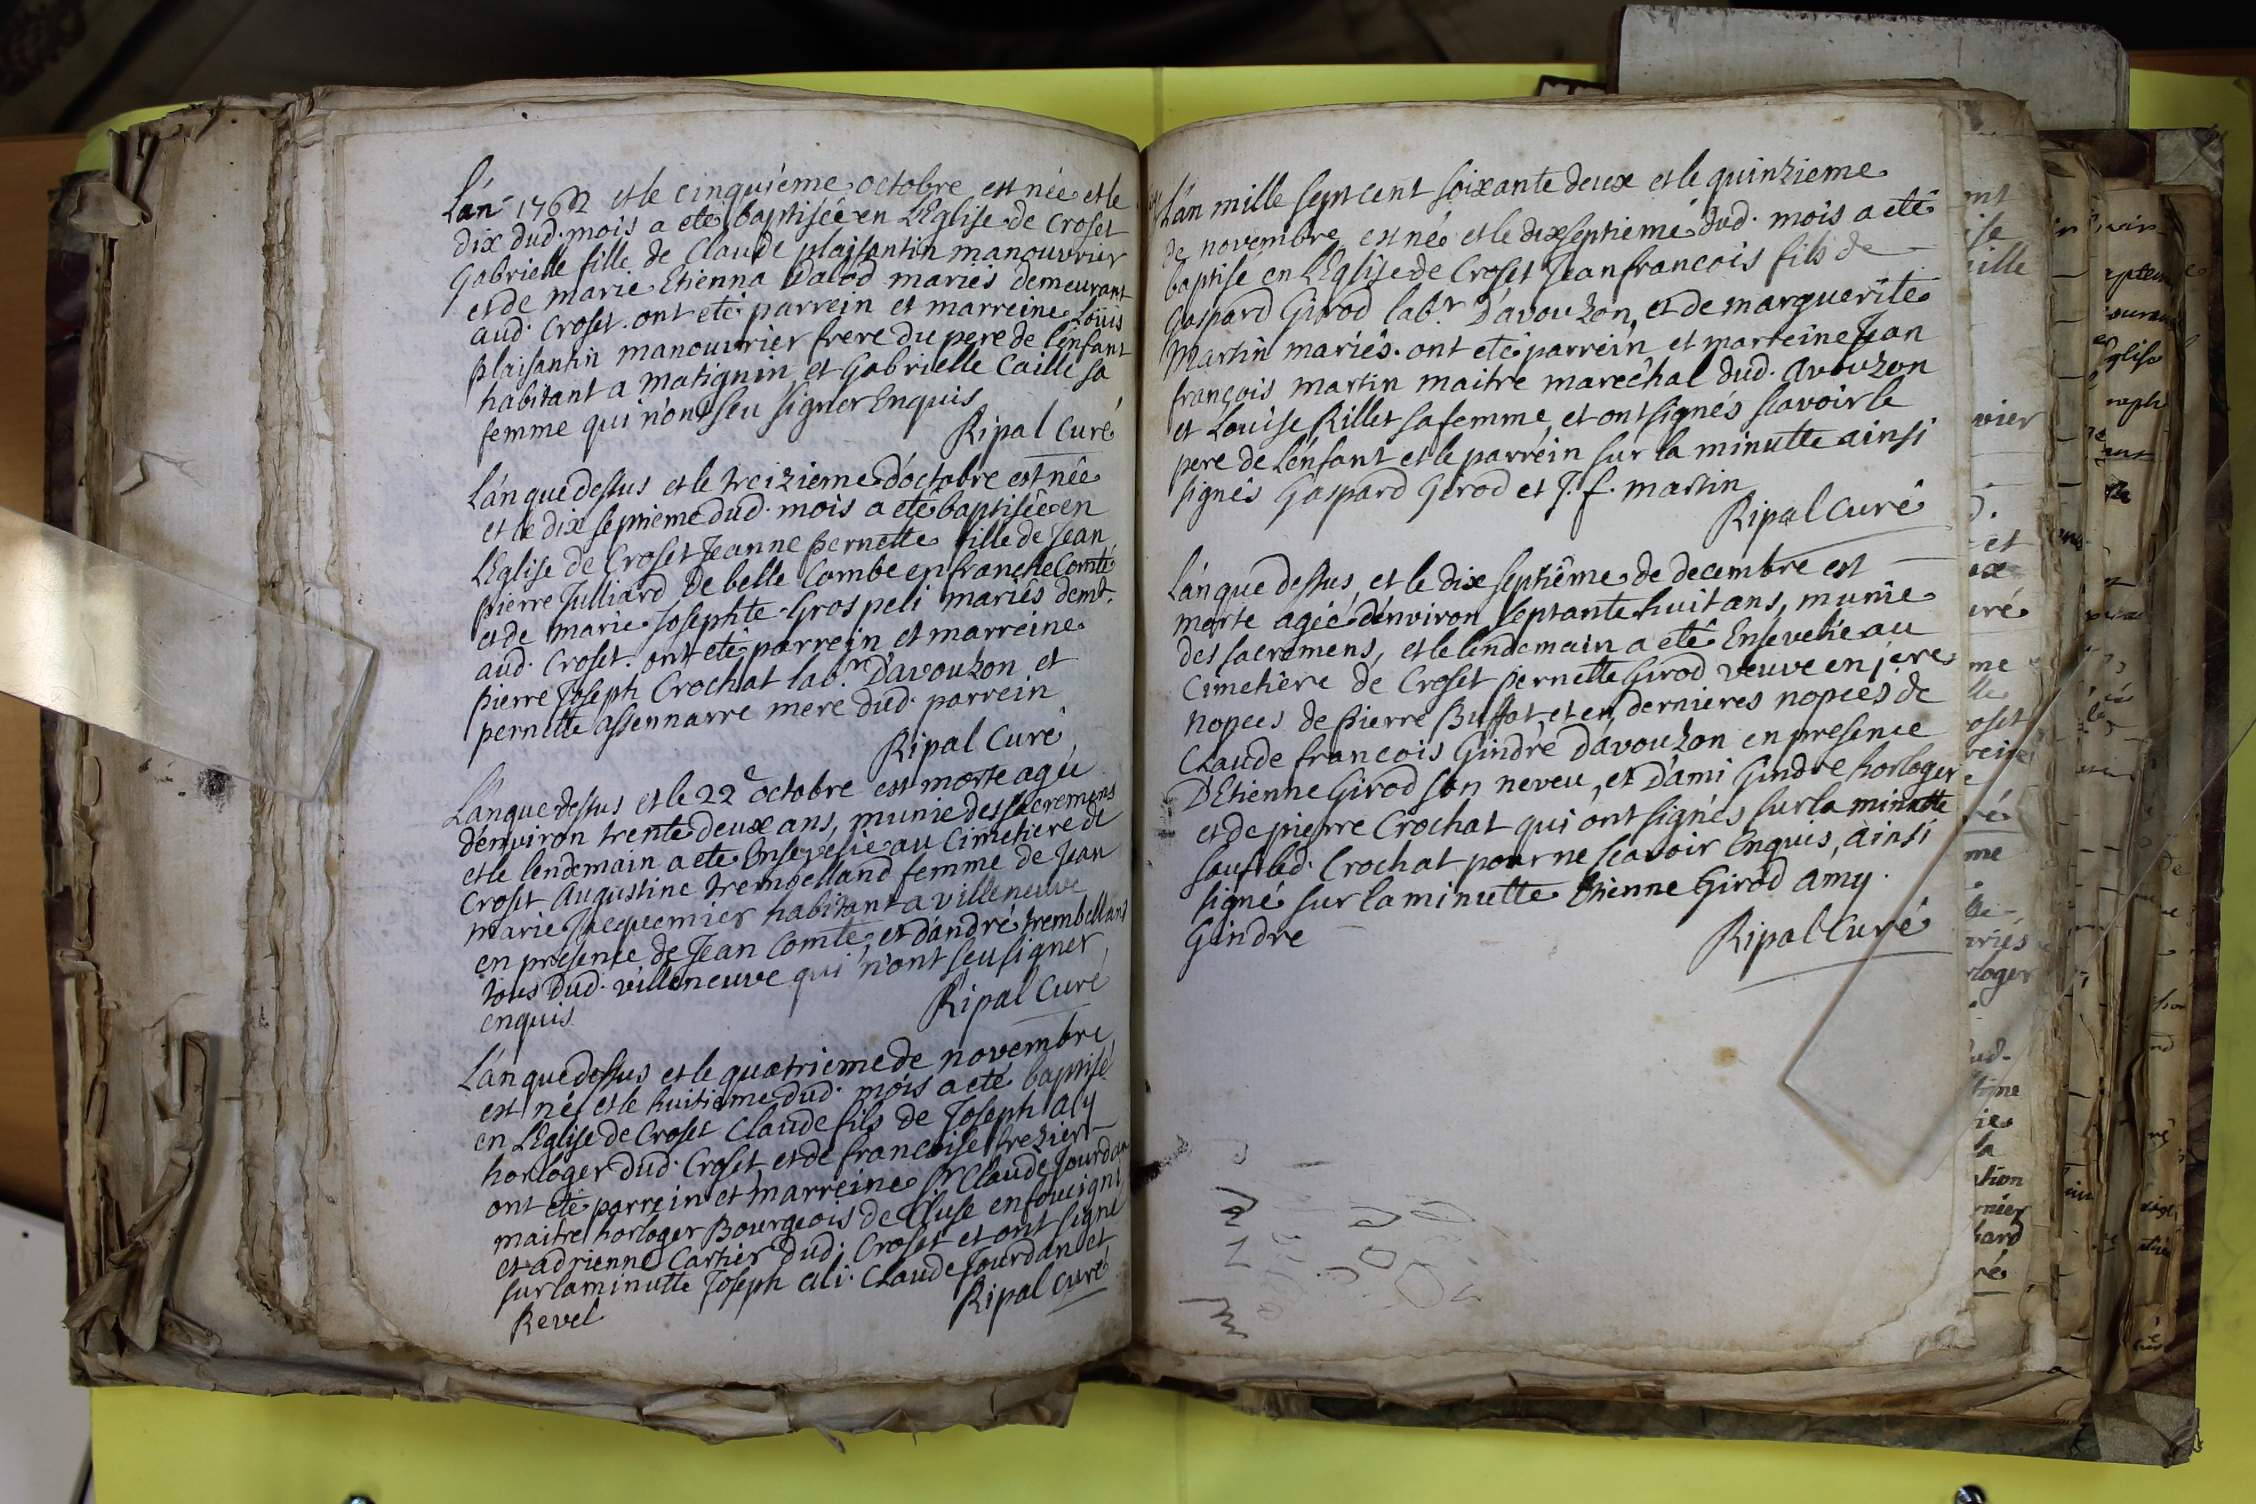 L'an 1762 et le cinquiéme octobre est née et le
dix dud. mois a eté baptisée en L'Eglise de Croset
Gabrielle fille de Claude plaisantin manouvrier
et de marie Etienna Dalod mariés demeurant
aud. Croset. ont eté parrein et marreine Loüis
plaisantin manouvrier frere du pere de l'enfant
habitant a matignin et Gabrielle Caille sa
femme qui n'ont seu signer Enquis
Ripal Curé
L'an que dessus et le treizieme d'octobre est née
et le dix septieme dud. mois a eté baptisée en
L'Eglise de Croset Jeanne pernette fille de Jean
pierre Julliard De belle Combe en franche Comté
et de marie Josephte Grospeli mariés demt.
aud. Croset. ont eté parrein et marreine
pierre Joseph Crochat labr. D'avouzon et
pernette assennarre mere dud. parrein
Ripal Curé
L'an que dessus et le 22e octobre est morte agée
d'environ trente deux ans, munie des sacremens
et le lendemain a eté Ensevelie au Cimetiere de
Croset Augustine trembelland femme de Jean
marie Jacquemier habitant a villeneuve
en presence de Jean Comte, et d'andré trembelland
tous Dud. villeneuve qui n'ont seu signer
enquis
Ripal Curé
L'an que dessus et le quatrieme de novembre
est né, et le huitieme dud. mois a eté baptisé
en L'Eglise de Croset Claude fils de Joseph aly
horloger dud. Croset, et de francoise frezier
ont eté parrein et marreine Sr. Claude Jourdan
maitre horloger Bourgeois de Cluse en foucigni
et adrienne Cartier dud. Croset et ont signé
sur la minutte Joseph ali. Claude Jourdan et
Revel
Ripal curé
L'an mille sept cent soixante deux et le quinzieme
de novembre est né et le dixseptieme dud. mois a eté
baptisé en L'Eglise de Croset Jean francois fils de
Gaspard Girod labr. D'avouzon, et de marguerite
Martin mariés. ont eté parrein et marreine Jean
françois martin maitre maréchal dud. avouzon
et Louise Rillet sa femme, et ont signés scavoir le
pere de L'enfant et le parrein sur la minutte ainsi
signés Gaspard Gerod et J. f. martin
Ripal Curé
L'an que dessus, et le dix septiême de decembre est
morte agée d'environ septante huit ans, munie
des sacremens, et le lendemain a eté Ensevelie au
Cimetière de Croset pernette Girod veuve en 1eres
nopces de Pierre Buffat, et en dernieres nopces de
Claude francois Gindre D'avouzon en presence
D'Etienne Girod son neveu, et D'ami Gindre horloger
et de pierre Crochat qui ont signés sur la minutte
sauf led. Crochat pour ne scavoir Enquis, ainsi
signé sur la minutte Etienne Girod amy.
Gindre
Ripal Curé